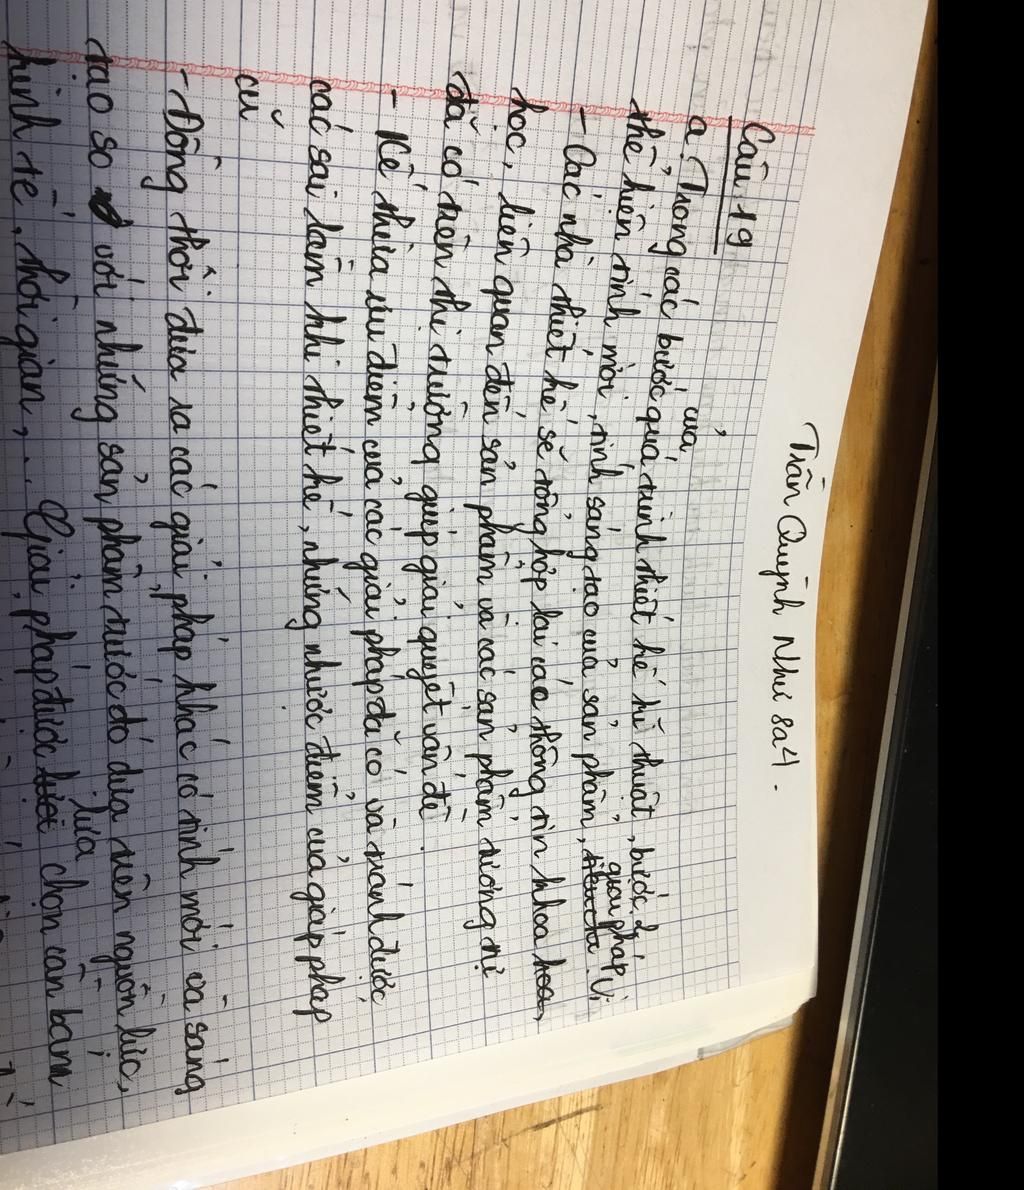 Trần Quỳnh Như 8a4.
Câu 19
a. Trong các bước của quá trình thiết kế kĩ thuật, bước 2
thể hiện tính mới, tính sáng tạo của sản phẩm, giải pháp. Vì
- Các nhà thiết kế sẽ tổng hợp lại các thông tin khoa
học, liên quan đến sản phẩm và các sản phẩm tương tự
đã có trên thị trường giúp giải quyết vấn đề.
- Kế thừa ưu điểm của các giải pháp đã có và tránh được
các sai lầm khi thiết kế, những nhược điểm của giáp pháp
cũ
- Đồng thời đưa ra các giải pháp khác có tính mới và sáng
tạo so với những sản phẩm trước đó dựa trên nguồn lực,
kinh tế, thời gian,... Giải pháp được lựa chọn cần bám